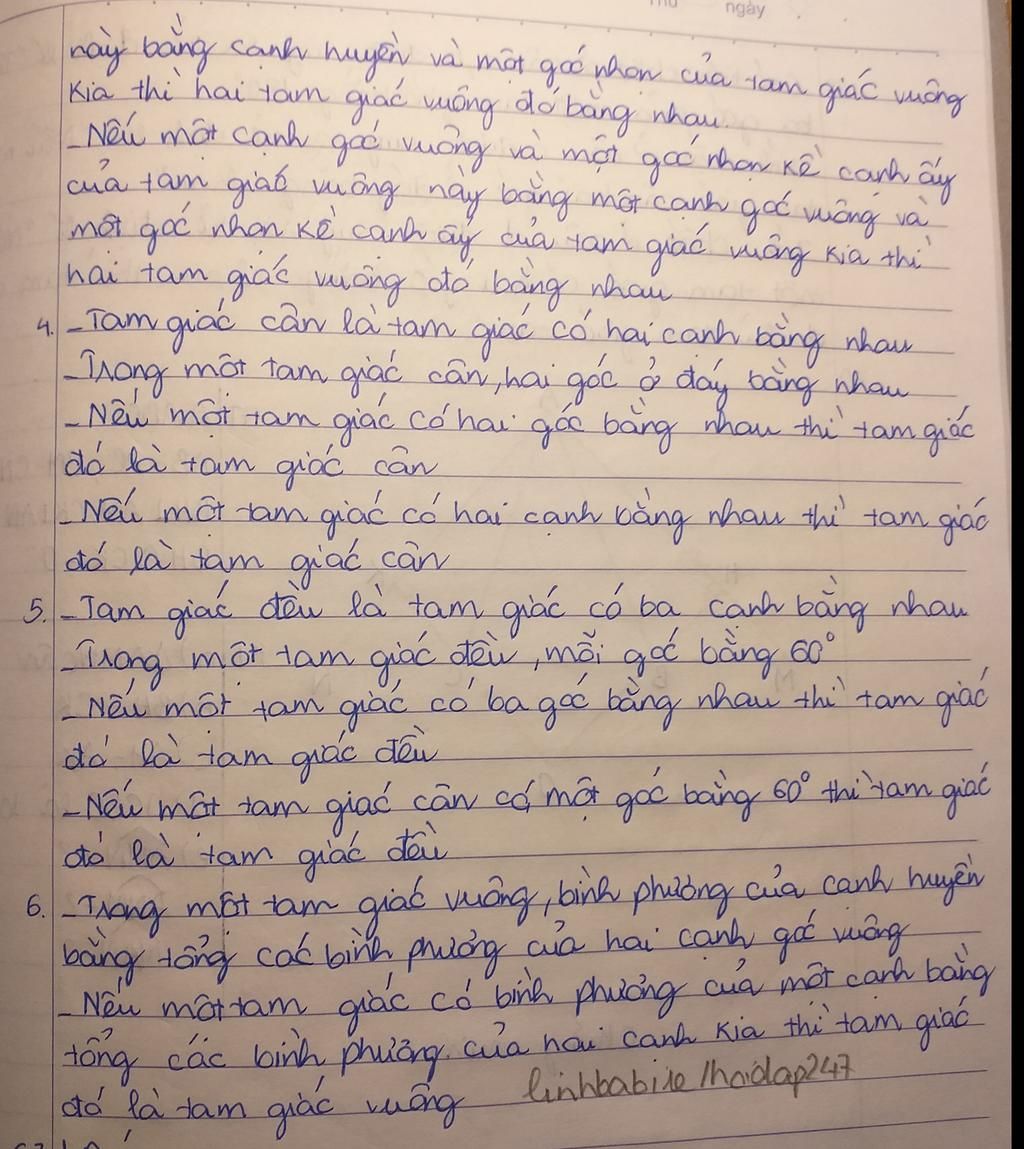 ngày
này bằng cạnh huyền và một góc nhọn của tam giác vuông
kia thì hai tam giác vuông đó bằng nhau.
- Nếu một cạnh góc vuông và một góc nhọn kề cạnh ấy
của tam giác vuông này bằng một cạnh góc vuông và
một góc nhọn kề cạnh ấy của tam giác vuông kia thì
hai tam giác vuông đó bằng nhau
4. - Tam giác cân là tam giác có hai cạnh bằng nhau
- Trong một tam giác cân, hai góc ở đáy bằng nhau
- Nếu một tam giác có hai góc bằng nhau thì tam giác
đó là tam giác cân
- Nếu một tam giác có hai cạnh bằng nhau thì tam giác
đó là tam giác cân
5. - Tam giác đều là tam giác có ba cạnh bằng nhau
- Trong một tam giác đều, mỗi góc bằng 60°
- Nếu một tam giác có ba góc bằng nhau thì tam giác
đó là tam giác đều
- Nếu một tam giác cân có một góc bằng 60° thì tam giác
đó là tam giác đều
6. - Trong một tam giác vuông, bình phương của cạnh huyền
bằng tổng các bình phương của hai cạnh góc vuông
- Nếu một tam giác có bình phương của một cạnh bằng
tổng các bình phương của hai cạnh kia thì tam giác
đó là tam giác vuông